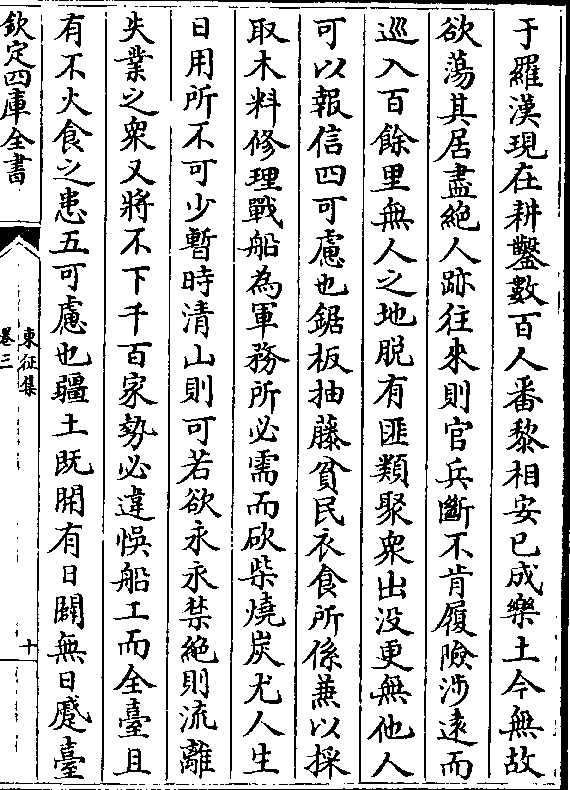 于羅漢現在耕鑿數百人番黎相安已成樂土今無故
欲蕩其居盡絶人跡往來則官兵斷不肯履險涉遠而
巡入百餘里無人之地脱有匪類聚衆出没更無他人
可以報信四可慮也鋸板抽藤貧民衣食所係兼以採
取木料修理戰船為軍務所必需而砍柴燒炭尤人生
日用所不可少暫時清山則可若欲永永禁絶則流離
失業之衆又將不下千百家勢必違悞船工而全臺且
有不火食之患五可慮也疆土既開有日闢無日蹙臺
欽定四庫全書
東征集
卷三
十